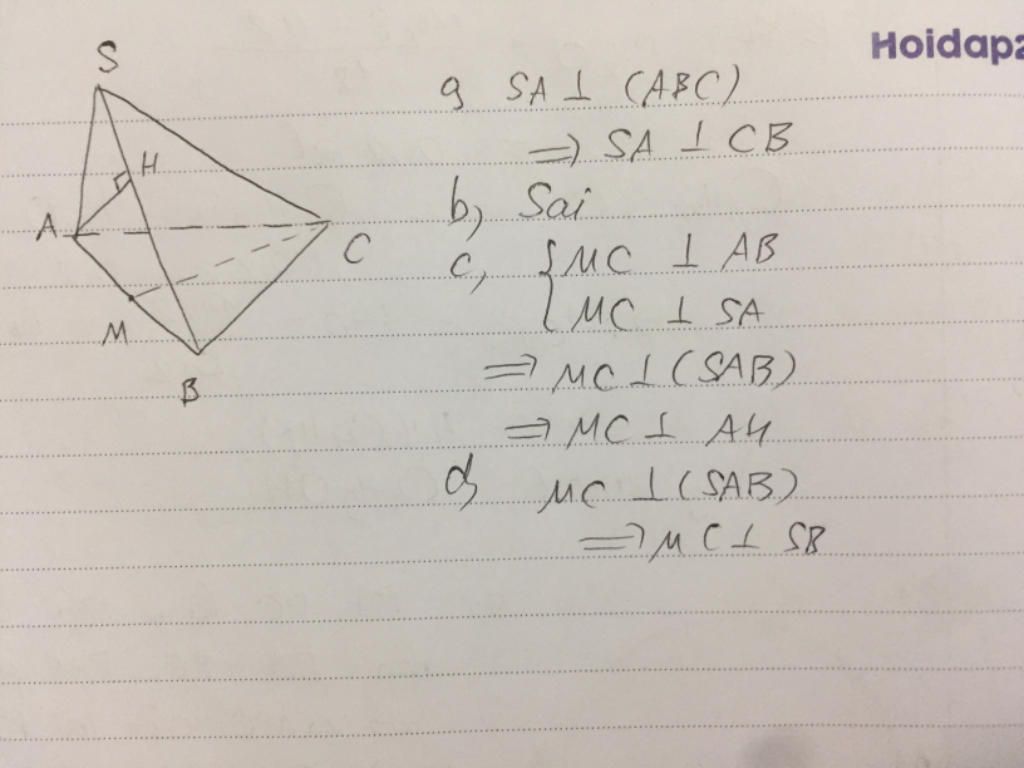 Hoidap2
S
H
A
C
M
B
a, SA ⊥ (ABC)
=> SA ⊥ CB
b, Sai
c, { MC ⊥ AB
MC ⊥ SA
=> MC ⊥ (SAB)
=> MC ⊥ AH
d, MC ⊥ (SAB)
=> MC ⊥ SB